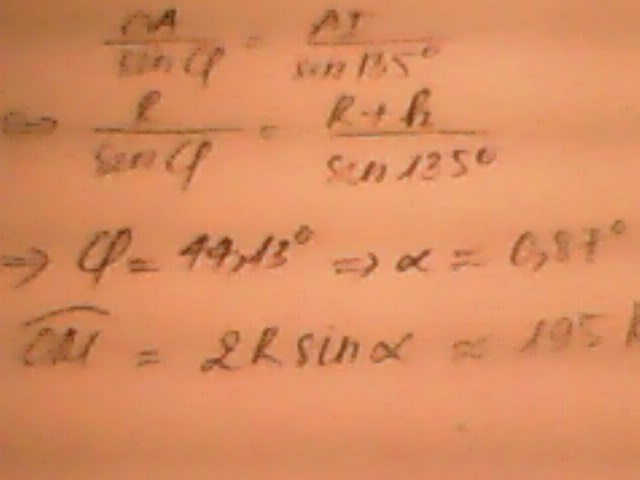 sin φ = sin 135°
⇔ R / sin φ = R + h / sin 135°
⇒ φ = 44,13° ⇒ α = 0,87°
= 2R sin α ≈ 195